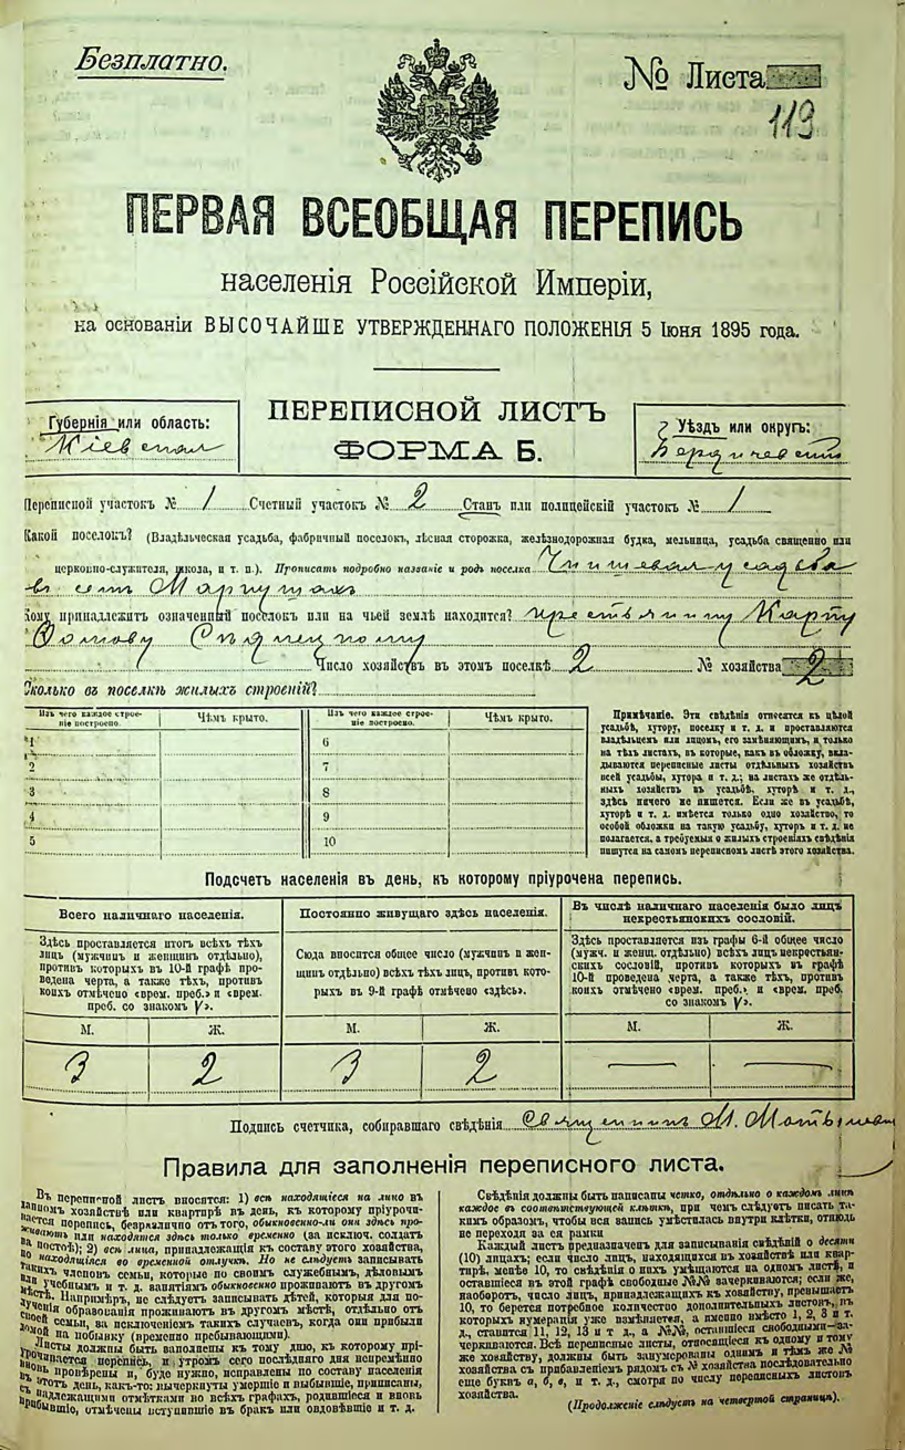 Безплатно.
№ Листа
119
ПЕРВАЯ ВСЕОБЩАЯ ПЕРЕПИСЬ
населенія Россійской Имперіи,
на основаніи ВЫСОЧАЙШЕ УТВЕРЖДЕННАГО ПОЛОЖЕНІЯ 5 Іюня 1895 года.
Губернія или область:
Кіевская
ПЕРЕПИСНОЙ ЛИСТЪ
ФОРМА Б.
Уѣздъ или округъ:
Бердичевскій
Переписной участокъ № 1 Счетный участокъ № 2 Станъ или полицейскій участокъ № 1
Какой поселокъ? (Владѣльческая усадьба, фабричный поселокъ, лѣсная сторожка, желѣзнодорожная будка, мельница, усадьба священно или
церковно-служителя, школа, и т. п.). Прописать подробно названіе и родъ поселка усадьба
въ селѣ
Кому принадлежитъ означенный поселокъ или на чьей землѣ находится? крестьянину Карпу
Число хозяйствъ въ этомъ поселкѣ 2 № хозяйства 2
Сколько въ поселкѣ жилыхъ строеній?
Изъ чего каждое строе-
ніе построено.
Чѣмъ крыто.
Изъ чего каждое строе-
ніе построено.
Чѣмъ крыто.
1 6
2 7
3 8
4 9
5 10
Примѣчаніе. Эти свѣдѣнія относятся къ цѣлой
усадьбѣ, хутору, поселку и т. д. и проставляются
владѣльцемъ или лицомъ, его замѣняющимъ, и только
на тѣхъ листахъ, въ которые, какъ въ обложку, вкла-
дываются переписные листы отдѣльныхъ хозяйствъ
всей усадьбы, хутора и т. д.; на листахъ же отдѣль-
ныхъ хозяйствъ въ усадьбѣ, хуторѣ и т. д.,
здѣсь ничего не пишется. Если же въ усадьбѣ,
хуторѣ и т. д. имѣется только одно хозяйство, то
особой обложки на такую усадьбу, хуторъ и т. д. не
полагается, а требуемыя о жилыхъ строеніяхъ свѣдѣнія
пишутся на самомъ переписномъ листѣ этого хозяйства.
Подсчетъ населенія въ день, къ которому пріурочена перепись.
Всего наличнаго населенія.
Здѣсь проставляется итогъ всѣхъ тѣхъ
лицъ (мужчинъ и женщинъ отдѣльно),
противъ которыхъ въ 10-й графѣ про-
ведена черта, а также тѣхъ, противъ
коихъ отмѣчено «врем. преб.» и «врем.
преб. со знакомъ V».
М. Ж.
3 2
Постоянно живущаго здѣсь населенія.
Сюда вносится общее число (мужчинъ и жен-
щинъ отдѣльно) всѣхъ тѣхъ лицъ, противъ кото-
рыхъ въ 9-й графѣ отмѣчено «здѣсь».
М. Ж.
3 2
Въ числѣ наличнаго населенія было лицъ
некрестьянскихъ сословій.
Здѣсь проставляется изъ графы 6-й общее число
(мужч. и женщ. отдѣльно) всѣхъ лицъ некрестьян-
скихъ сословій, противъ которыхъ въ графѣ
10-й проведена черта, а также тѣхъ, противъ
коихъ отмѣчено «врем. преб.» и «врем. преб.
со знакомъ V».
М. Ж.
— —
Подпись счетчика, собиравшаго свѣдѣнія Священникъ М.
Правила для заполненія переписного листа.
Въ переписной листъ вносятся: 1) всѣ находящіеся на лицо въ
данномъ хозяйствѣ или квартирѣ въ день, къ которому пріурочи-
вается перепись, безразлично отъ того, обыкновенно-ли они здѣсь про-
живаютъ или находятся здѣсь только временно (за исключ. солдатъ
на постоѣ); 2) всѣ лица, принадлежащія къ составу этого хозяйства,
но находящіяся во временной отлучкѣ. Но не слѣдуетъ записывать
такихъ членовъ семьи, которые по своимъ служебнымъ, дѣловымъ
или учебнымъ и т. д. занятіямъ обыкновенно проживаютъ въ другомъ
мѣстѣ. Напримѣръ, не слѣдуетъ записывать дѣтей, которыя для по-
лученія образованія проживаютъ въ другомъ мѣстѣ, отдѣльно отъ
своей семьи, за исключеніемъ такихъ случаевъ, когда они прибыли
домой на побывку (временно пребывающими).
Листы должны быть заполнены къ тому дню, къ которому прі-
урочивается перепись, и утромъ сего послѣдняго дня непремѣнно
вновь провѣрены и, буде нужно, исправлены по составу населенія
въ этотъ день, какъ-то: вычеркнуты умершіе и выбывшіе, приписаны,
съ надлежащими отмѣтками во всѣхъ графахъ, родившіеся и вновь
прибывшіе, отмѣчены вступившіе въ бракъ или овдовѣвшіе и т. д.
Свѣдѣнія должны быть написаны четко, отдѣльно о каждомъ лицѣ
каждое въ соотвѣтствующей клѣткѣ, при чемъ слѣдуетъ писать та-
кимъ образомъ, чтобы вся запись умѣстилась внутри клѣтки, отнюдь
не переходя за ея рамки
Каждый листъ предназначенъ для записыванія свѣдѣній о десяти
(10) лицахъ; если число лицъ, находящихся въ хозяйствѣ или квар-
тирѣ, менѣе 10, то свѣдѣнія о нихъ умѣщаются на одномъ листѣ, и
оставшіеся въ этой графѣ свободные №№ зачеркиваются; если же,
наоборотъ, число лицъ, принадлежащихъ къ хозяйству, превышаетъ
10, то берется потребное количество дополнительныхъ листовъ, въ
которыхъ нумерація уже измѣняется, а именно вмѣсто 1, 2, 3 и т.
д., ставится 11, 12, 13 и т д., а №№, оставшіеся свободными—за-
черкиваются. Всѣ переписные листы, относящіеся къ одному и тому
же хозяйству, должны быть занумерованы однимъ и тѣмъ же №
хозяйства съ прибавленіемъ рядомъ съ № хозяйства послѣдовательно
еще буквъ а, б, в, и т. д., смотря по числу переписныхъ листовъ
хозяйства.
(Продолженіе слѣдуетъ на четвертой страницѣ).